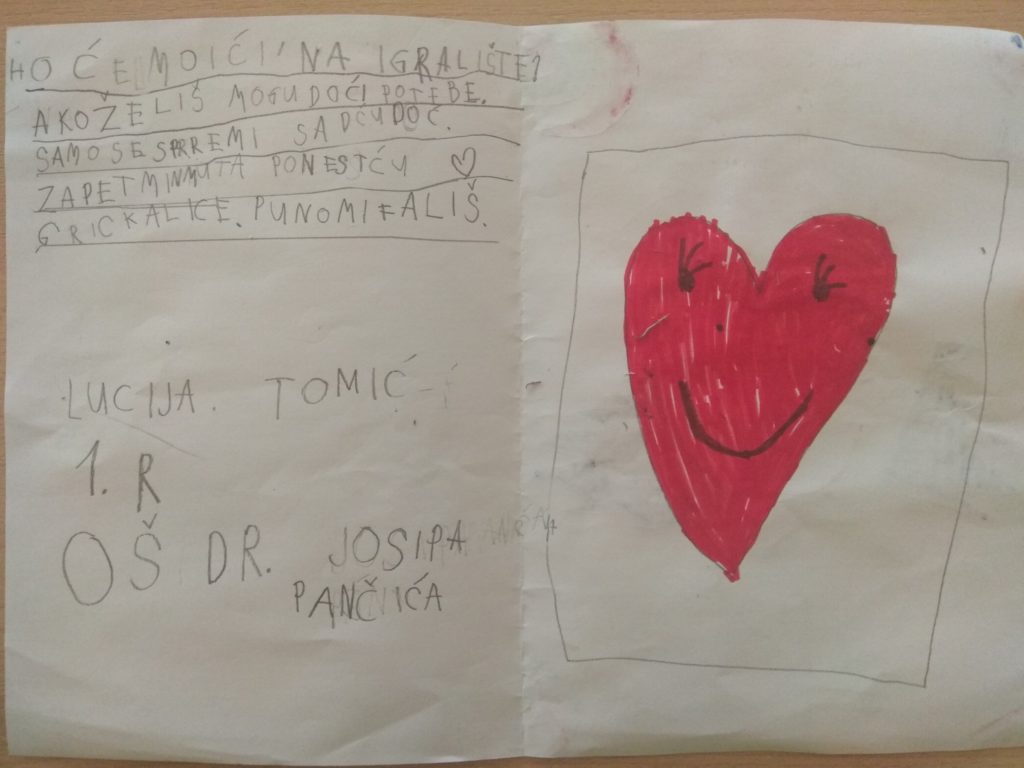 HOĆEMOIĆI NA IGRALIŠTE?
AKOŽELIŠ MOGUDOĆI POTEBE.
SAMOSESPRREMI SADCUDOĆ.
ZAPETMINMUTA PONESTĆU
GRICKALICE. PUNOMIFALIŠ.
LUCIJA. TOMIĆ
1. R
OŠ DR. JOSIPA
PANČIĆA